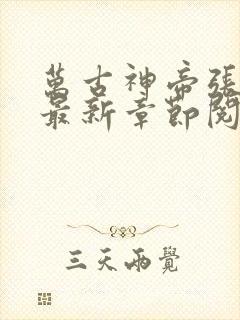 萬古神帝張
最新章節閱
三天兩覺